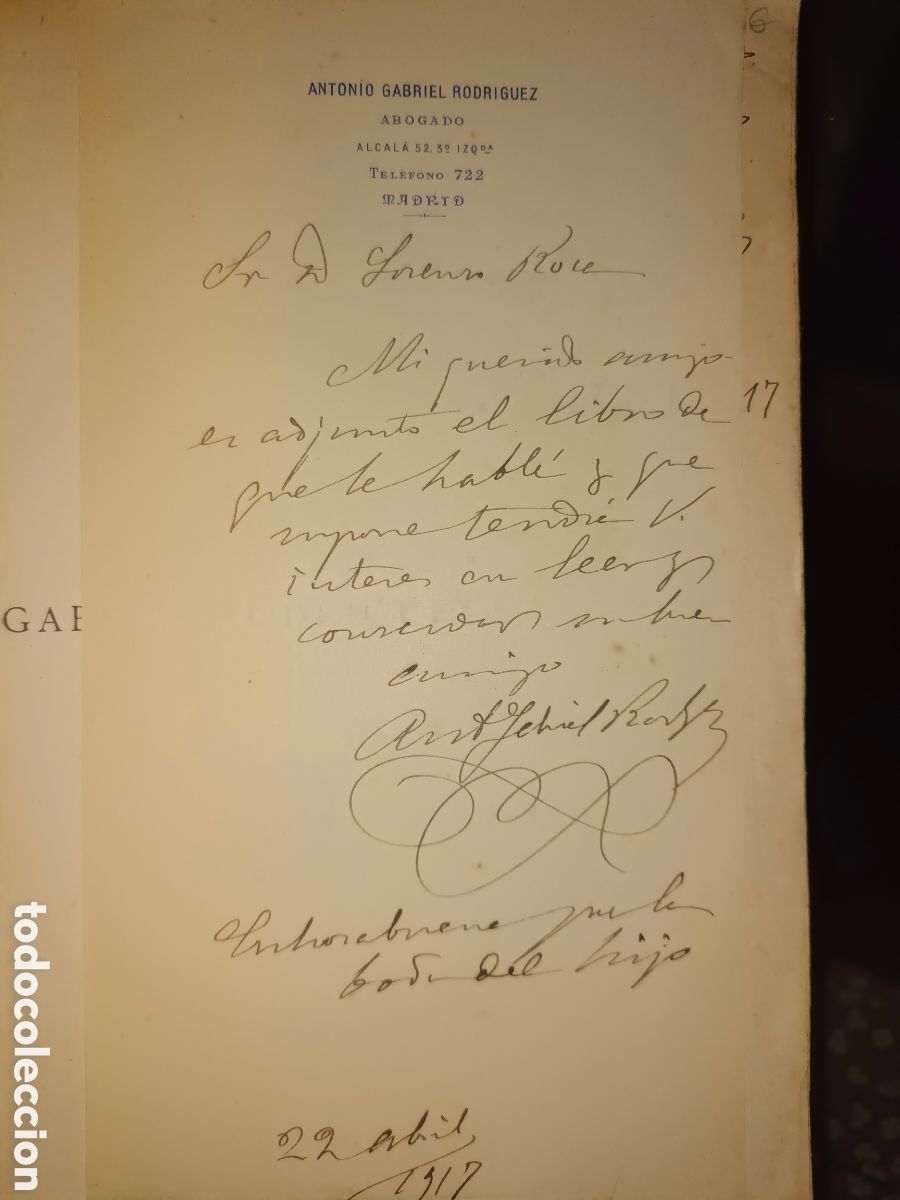 6
ANTONIO GABRIEL RODRIGUEZ
ABOGADO
ALCALÁ 52, 3º IZQDA
TELÉFONO 722
MADRID
Sr D Lorenzo
Mi querido amigo
es adjunto el libro de
que le hablé y que
supone tendrá V.
interes en leer y
conservar su buen
amigo
Ant Gabriel Rodgz
Enhorabuena por la
boda del hijo
22 abril
1917
17
GAB
todocoleccion